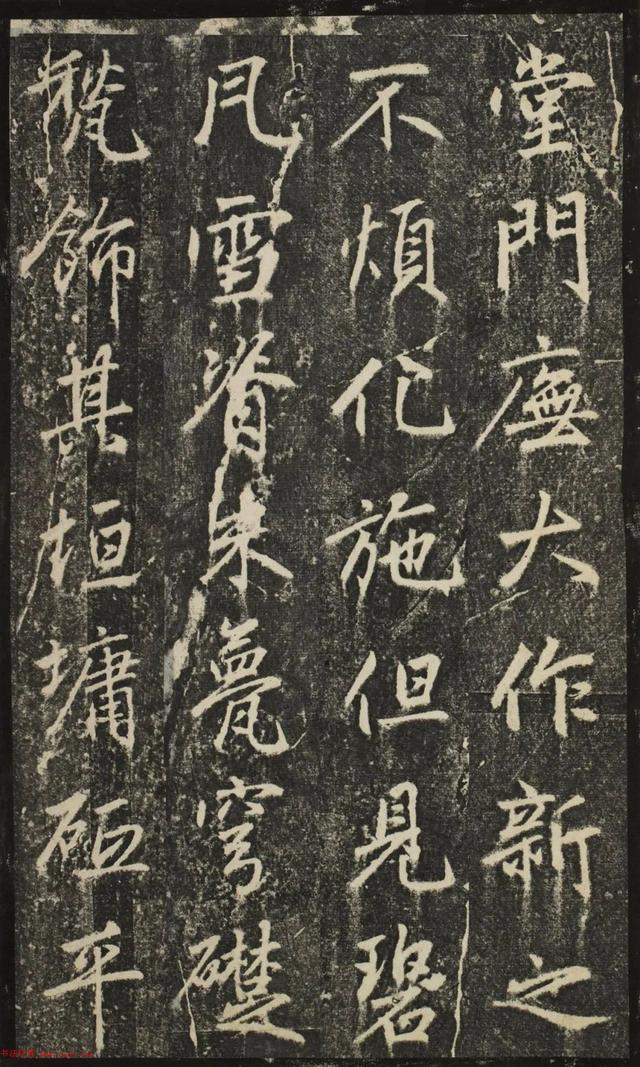 堂門廡大作新之
不煩化施但見碧
瓦雪脊朱甍穹礎
甃飾其垣墉砥平